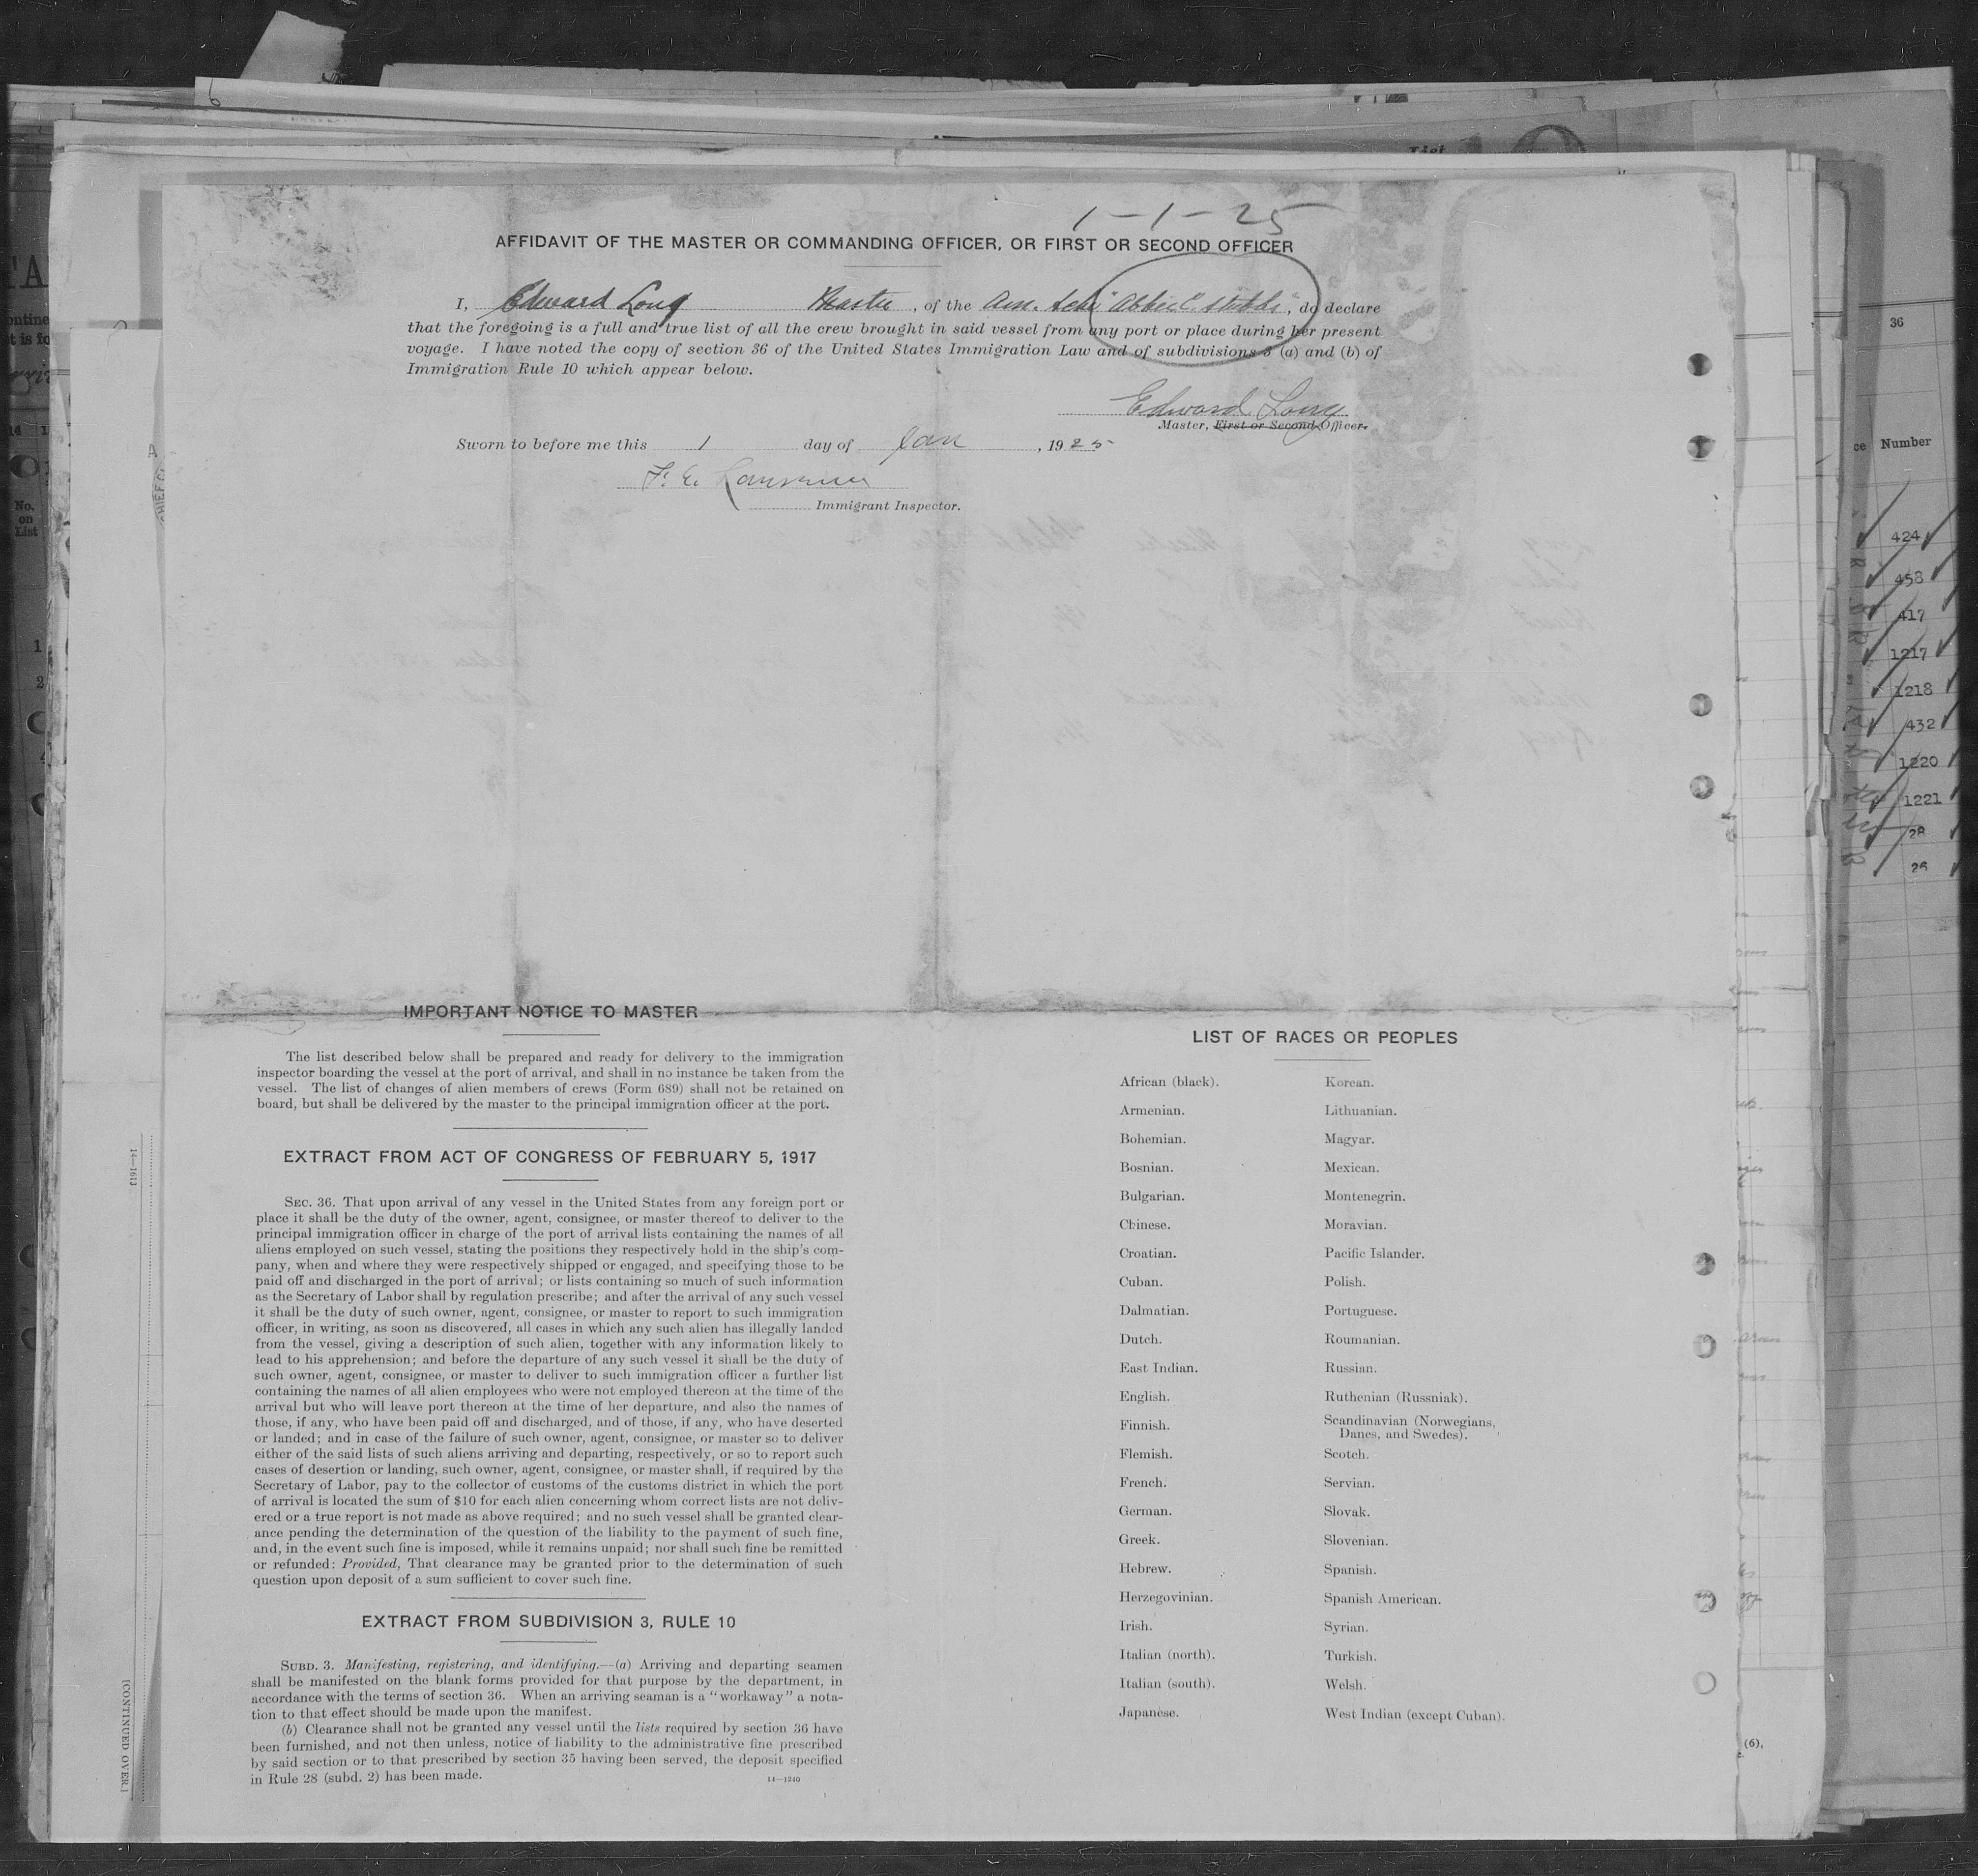 1-1-25
AFFIDAVIT OF THE MASTER OR COMMANDING OFFICER, OR FIRST OR SECOND OFFICER
I, Edward Long Master, of the Am. Sch "Abbie C. Stubbs", do declare
that the foregoing is a full and true list of all the crew brought in said vessel from any port or place during her present
voyage. I have noted the copy of section 36 of the United States Immigration Law and of subdivisions 3 (a) and (b) of
Immigration Rule 10 which appear below.
Edward Long
Master, First or Second Officer.
Sworn to before me this 1 day of Jan, 1925
F. E.
Immigrant Inspector.
IMPORTANT NOTICE TO MASTER
The list described below shall be prepared and ready for delivery to the immigration
inspector boarding the vessel at the port of arrival, and shall in no instance be taken from the
vessel. The list of changes of alien members of crews (Form 689) shall not be retained on
board, but shall be delivered by the master to the principal immigration officer at the port.
EXTRACT FROM ACT OF CONGRESS OF FEBRUARY 5, 1917
SEC. 36. That upon arrival of any vessel in the United States from any foreign port or
place it shall be the duty of the owner, agent, consignee, or master thereof to deliver to the
principal immigration officer in charge of the port of arrival lists containing the names of all
aliens employed on such vessel, stating the positions they respectively hold in the ship's com-
pany, when and where they were respectively shipped or engaged, and specifying those to be
paid off and discharged in the port of arrival; or lists containing so much of such information
as the Secretary of Labor shall by regulation prescribe; and after the arrival of any such vessel
it shall be the duty of such owner, agent, consignee, or master to report to such immigration
officer, in writing, as soon as discovered, all cases in which any such alien has illegally landed
from the vessel, giving a description of such alien, together with any information likely to
lead to his apprehension; and before the departure of any such vessel it shall be the duty of
such owner, agent, consignee, or master to deliver to such immigration officer a further list
containing the names of all alien employees who were not employed thereon at the time of the
arrival but who will leave port thereon at the time of her departure, and also the names of
those, if any, who have been paid off and discharged, and of those, if any, who have deserted
or landed; and in case of the failure of such owner, agent, consignee, or master so to deliver
either of the said lists of such aliens arriving and departing, respectively, or so to report such
cases of desertion or landing, such owner, agent, consignee, or master shall, if required by the
Secretary of Labor, pay to the collector of customs of the customs district in which the port
of arrival is located the sum of $10 for each alien concerning whom correct lists are not deliv-
ered or a true report is not made as above required; and no such vessel shall be granted clear-
ance pending the determination of the question of the liability to the payment of such fine,
and, in the event such fine is imposed, while it remains unpaid; nor shall such fine be remitted
or refunded: Provided, That clearance may be granted prior to the determination of such
question upon deposit of a sum sufficient to cover such fine.
EXTRACT FROM SUBDIVISION 3, RULE 10
SUBD. 3. Manifesting, registering, and identifying.—(a) Arriving and departing seamen
shall be manifested on the blank forms provided for that purpose by the department, in
accordance with the terms of section 36. When an arriving seaman is a "workaway" a nota-
tion to that effect should be made upon the manifest.
(b) Clearance shall not be granted any vessel until the lists required by section 36 have
been furnished, and not then unless, notice of liability to the administrative fine prescribed
by said section or to that prescribed by section 35 having been served, the deposit specified
in Rule 28 (subd. 2) has been made.
14—1240
LIST OF RACES OR PEOPLES
African (black).
Armenian.
Bohemian.
Bosnian.
Bulgarian.
Chinese.
Croatian.
Cuban.
Dalmatian.
Dutch.
East Indian.
English.
Finnish.
Flemish.
French.
German.
Greek.
Hebrew.
Herzegovinian.
Irish.
Italian (north).
Italian (south).
Japanese.
Korean.
Lithuanian.
Magyar.
Mexican.
Montenegrin.
Moravian.
Pacific Islander.
Polish.
Portuguese.
Roumanian.
Russian.
Ruthenian (Russniak).
Scandinavian (Norwegians,
Danes, and Swedes).
Scotch.
Servian.
Slovak.
Slovenian.
Spanish.
Spanish American.
Syrian.
Turkish.
Welsh.
West Indian (except Cuban).
List
36
Number
424
458
417
1217
1218
432
1220
1221
28
26
(6),
No.
on
List
14—1613
[CONTINUED OVER.]